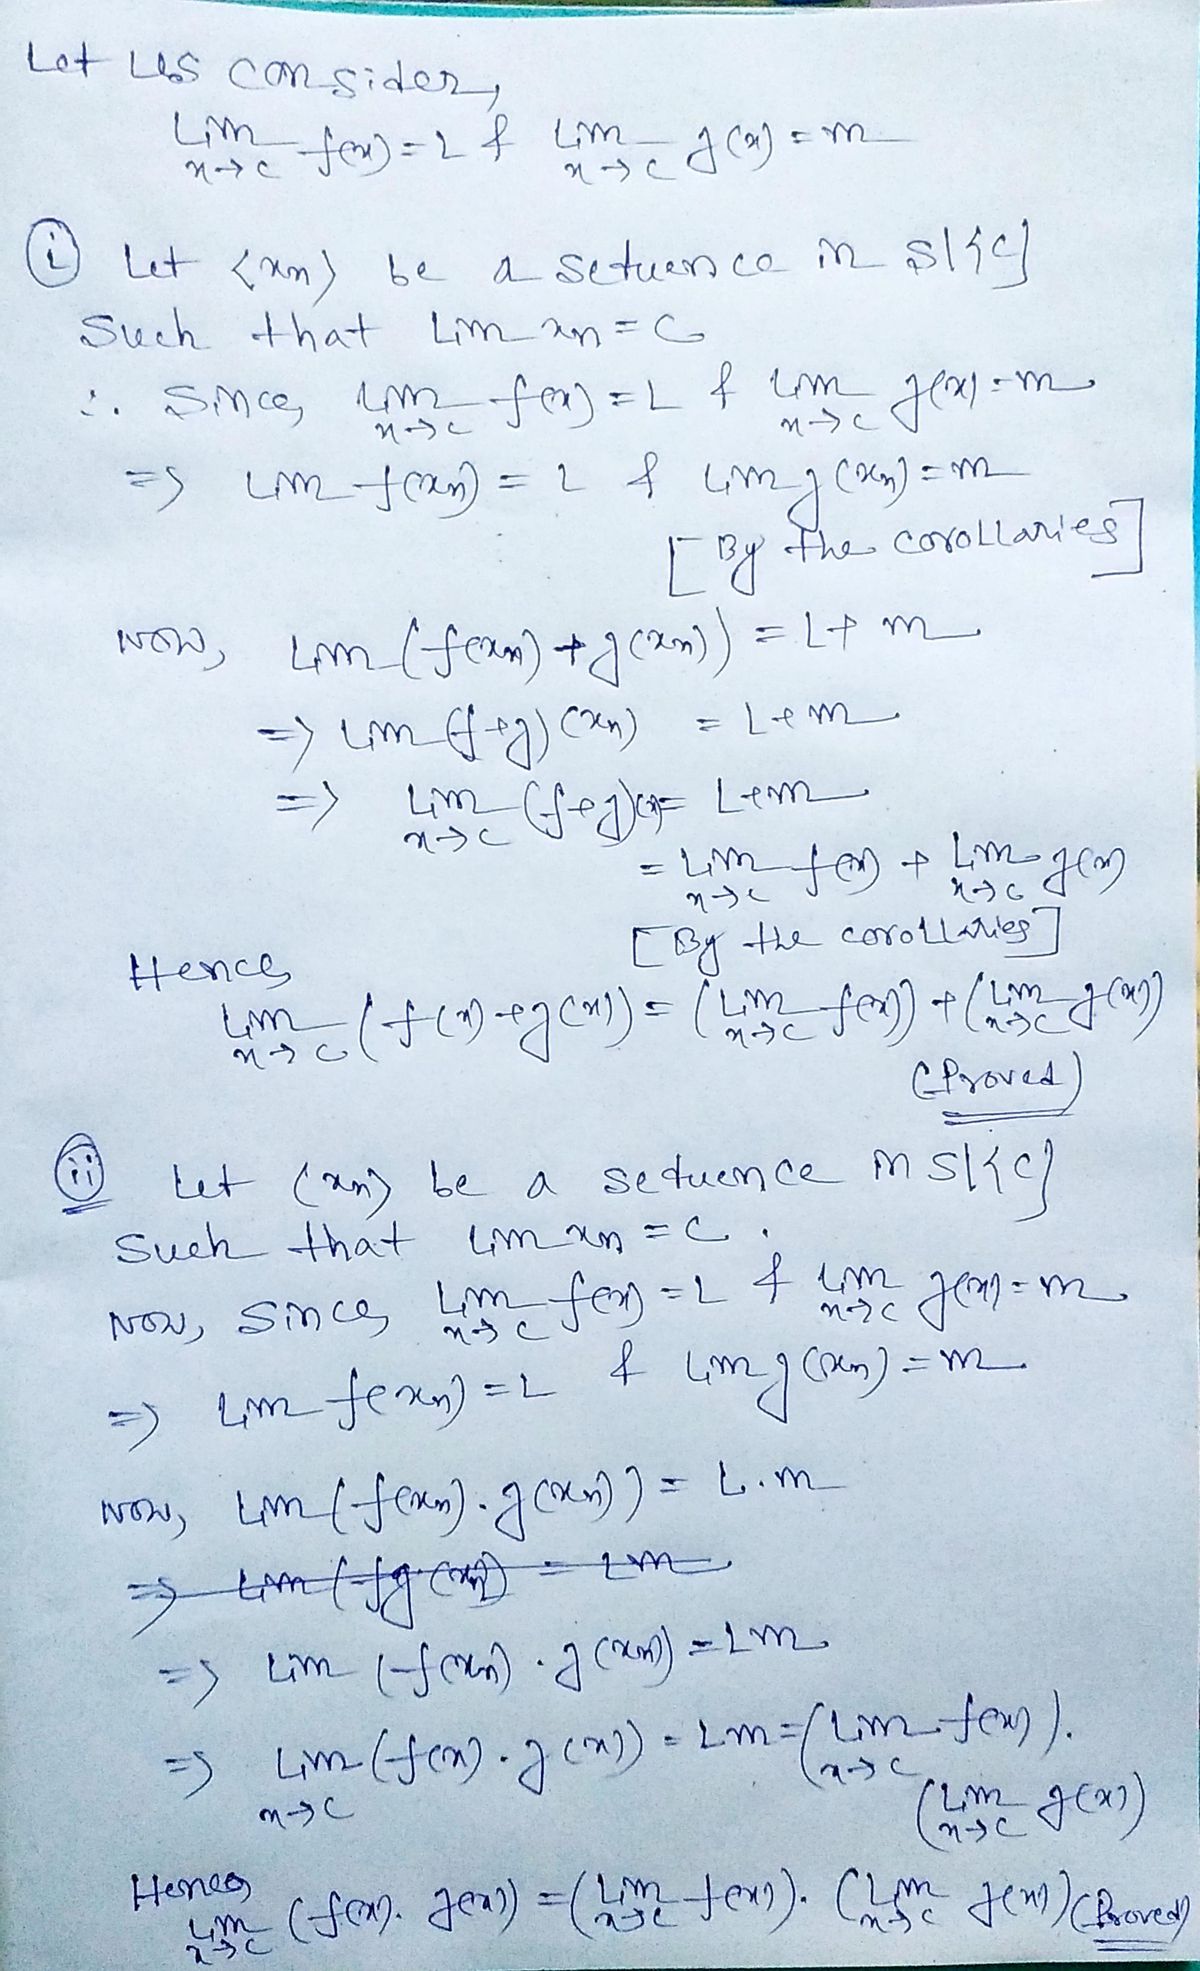 Let us consider,
Lim x→c f(x) = L & Lim x→c g(x) = m
(i) Let <xn> be a setuence in S\{c}
Such that Lim xn = c
∴ Since, Lim x→c f(x) = L & Lim x→c g(x) = m
=> Lim f(xn) = L & Lim g(xn) = m
[By the corollaries]
Now, Lim (f(xn) + g(xn)) = L + m
=> Lim (f+g)(xn) = L+m
=> Lim x→c (f+g)(x) = L+m
= Lim x→c f(x) + Lim x→c g(x)
[By the corollaries]
Hence
Lim x→c (f(x) + g(x)) = (Lim x→c f(x)) + (Lim x→c g(x))
(Proved)
(ii) Let <xn> be a setuence in S\{c}
Such that Lim xn = c.
Now, Since, Lim x→c f(x) = L & Lim x→c g(x) = m
=> Lim f(xn) = L & Lim g(xn) = m
Now, Lim (f(xn) . g(xn)) = L.m
=> Lim (fg(xn)) = Lm
=> Lim (f(xn) . g(xn)) = Lm
=> Lim x→c (f(x) . g(x)) = Lm = (Lim x→c f(x)).
(Lim x→c g(x))
Hence
Lim x→c (f(x). g(x)) = (Lim x→c f(x)). (Lim x→c g(x)) (Proved)